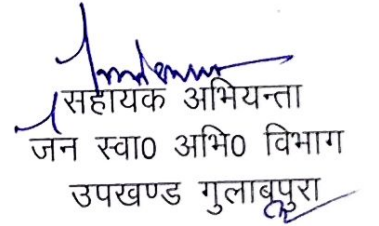 सहायक अभियन्ता
जन स्वा0 अभि0 विभाग
उपखण्ड गुलाबपुरा